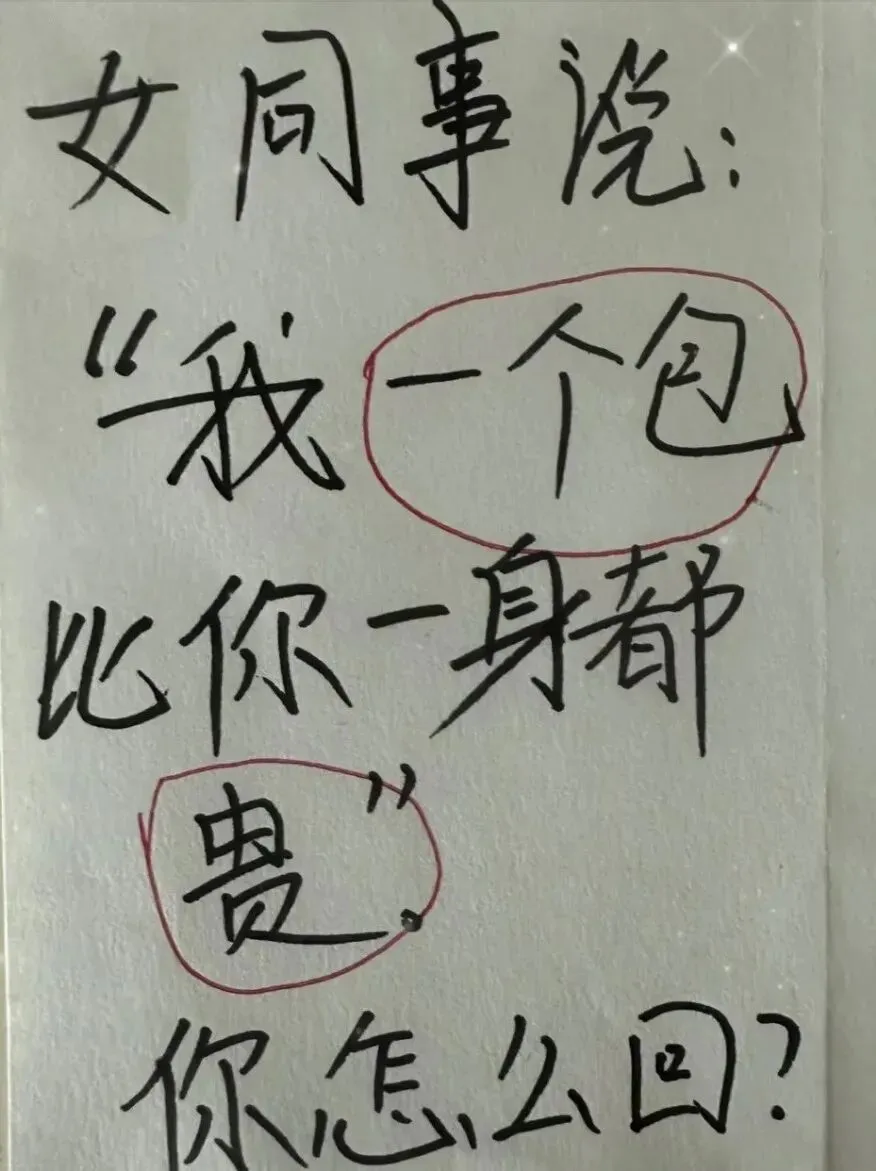 女同事说：
“我一个包
比你一身都
贵”.
你怎么回？